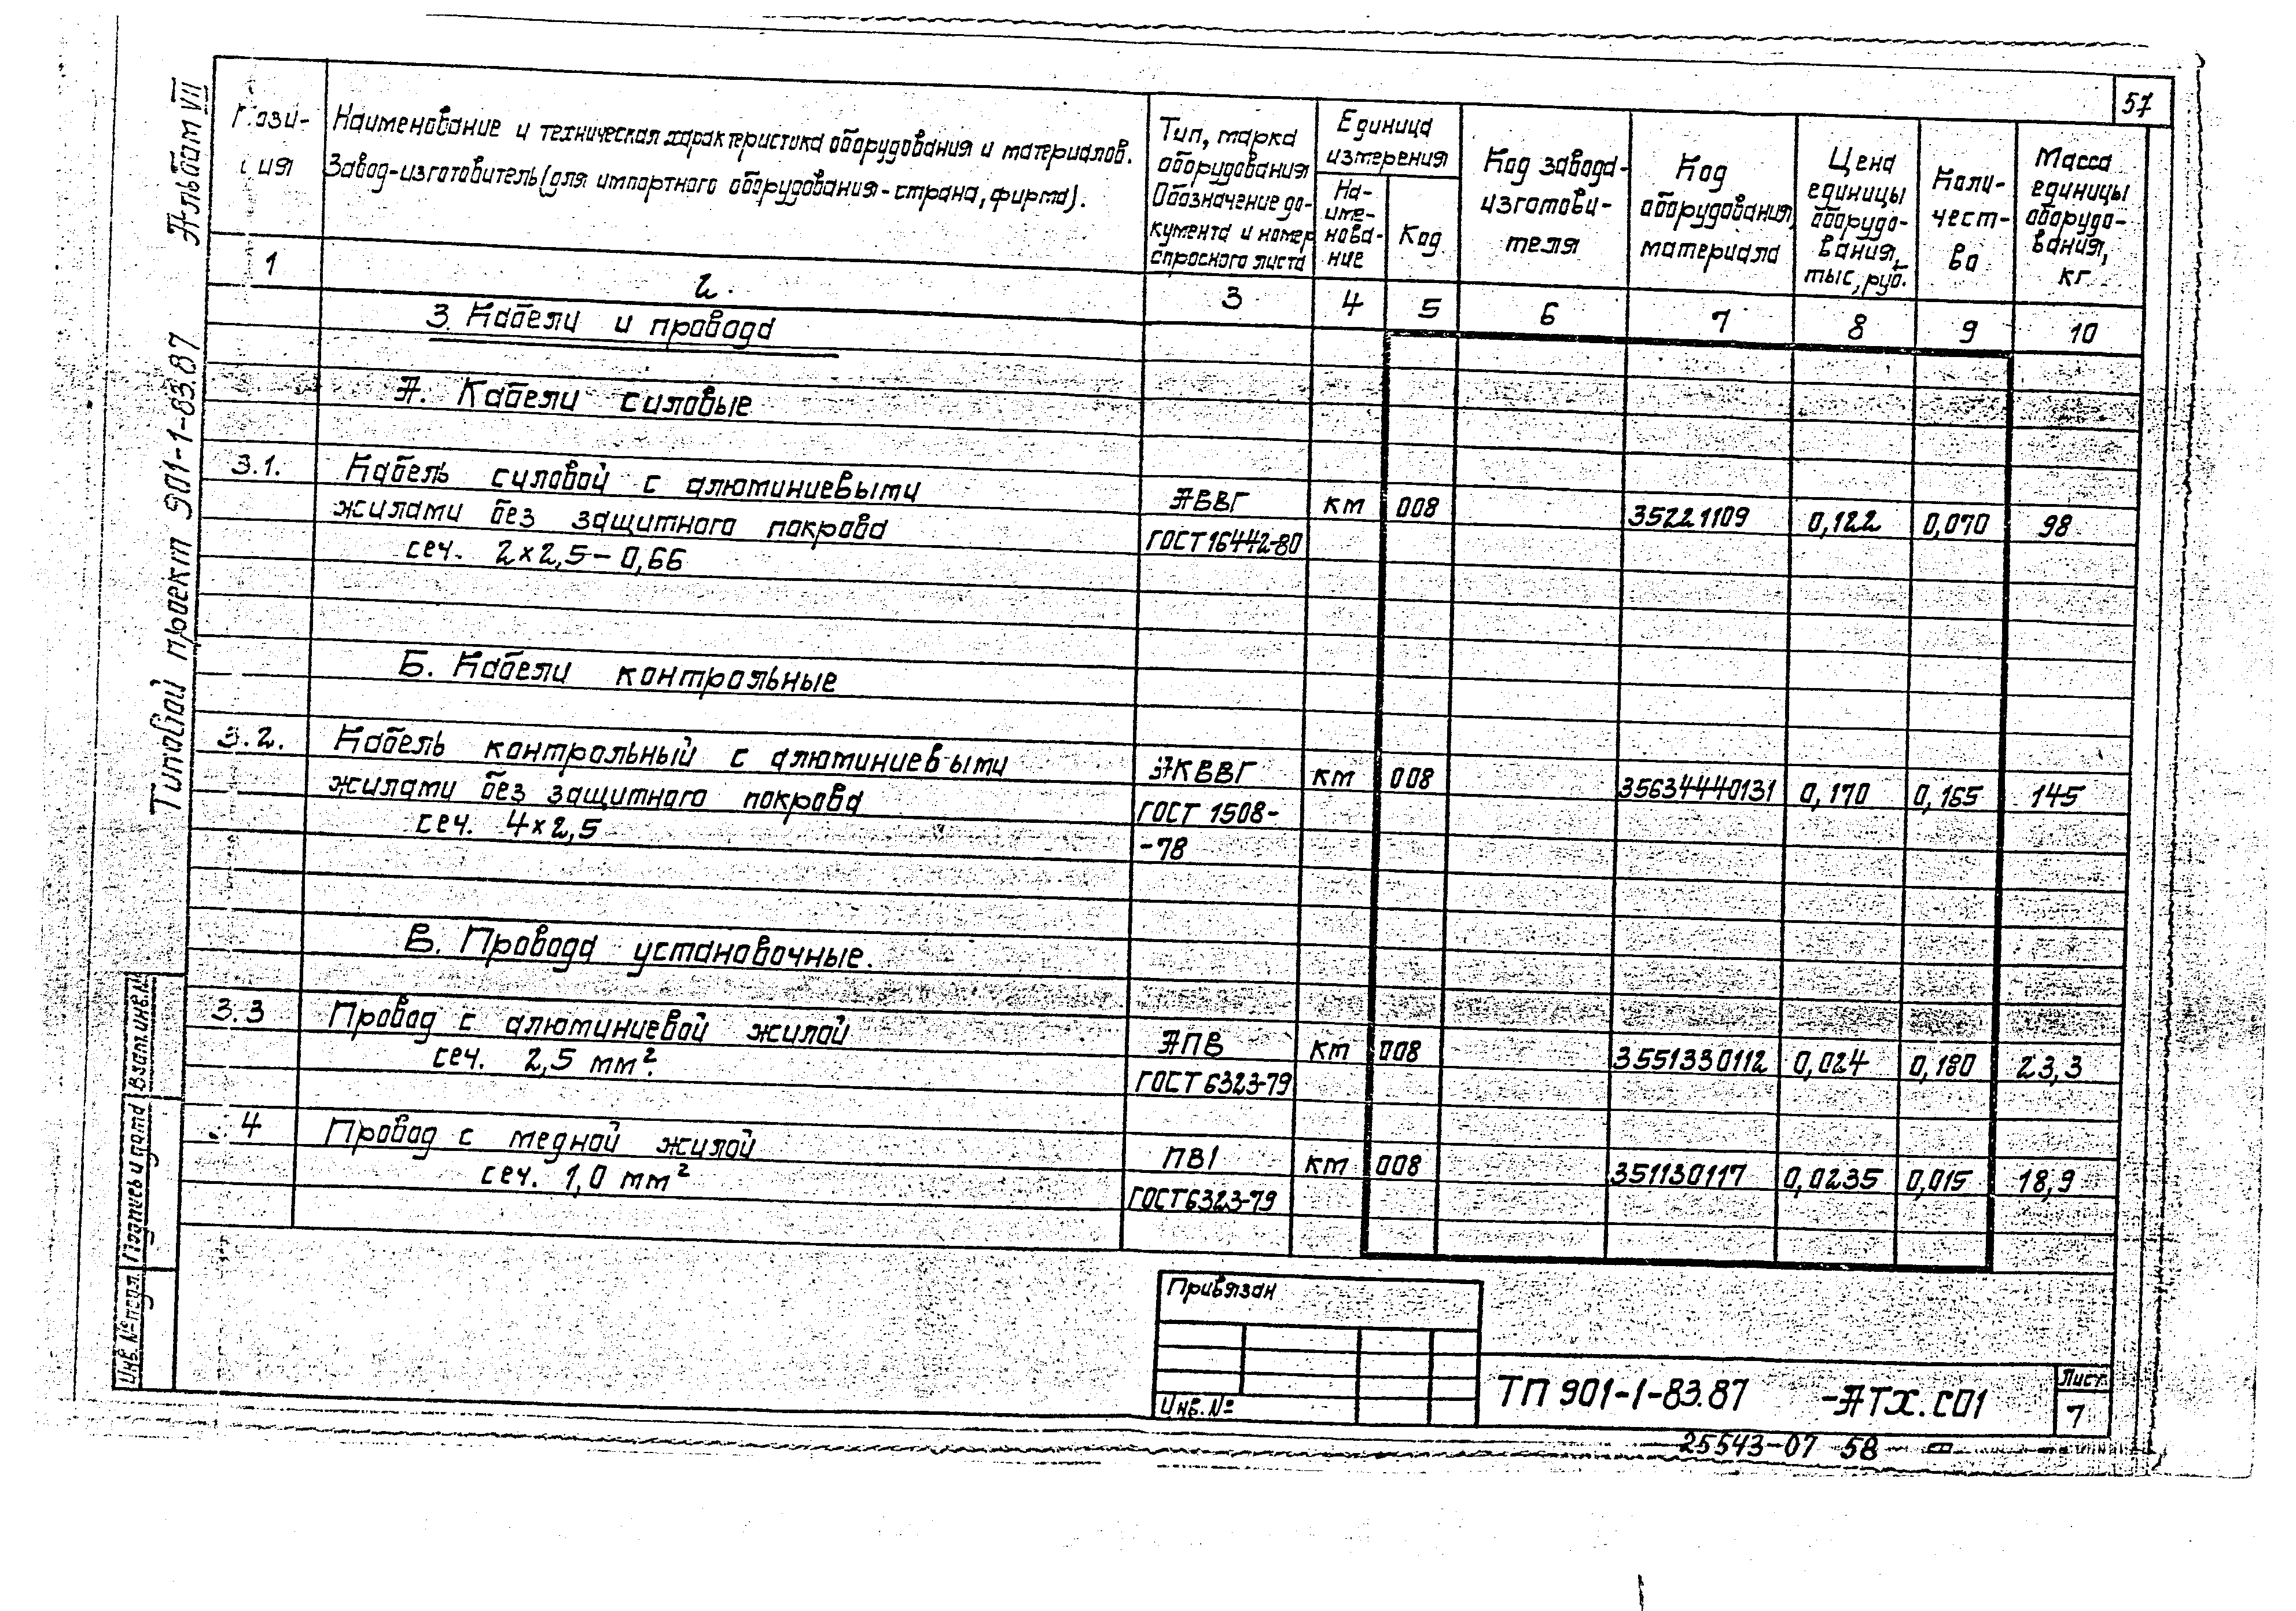 57
Альбом VII
Типовой проект 901-1-83.87
Пози-
ция
Наименование и техническая характеристика оборудования и материалов.
Завод-изготовитель (для импортного оборудования - страна, фирма).
Тип, марка
оборудования
Обозначение до-
кумента и номер
опросного листа
Единица
измерения
На-
име-
нова-
ние
Код
Код завода-
изготови-
теля
Код
оборудования,
материала
Цена
единицы
оборудо-
вания,
тыс, руб.
Коли-
чест-
во
Масса
единицы
оборудо-
вания,
кг
1 2. 3 4 5 6 7 8 9 10
3. Кабели и провода
А. Кабели силовые
3.1. Кабель силовой с алюминиевыми АВВГ км 008 35221109 0,122 0,070 98
жилами без защитного покрова ГОСТ 16442-80
сеч. 2×2,5-0,66
Б. Кабели контрольные
3.2. Кабель контрольный с алюминиевыми АКВВГ км 008 35634440131 0,170 0,165 145
жилами без защитного покрова ГОСТ 1508-
сеч. 4×2,5 -78
В. Провода установочные.
3.3 Провод с алюминиевой жилой АПВ км 008 3551330112 0,024 0,180 23,3
сеч. 2,5 мм². ГОСТ 6323-79
4 Провод с медной жилой ПВ1 км 008 351130117 0,0235 0,015 18,9
сеч. 1,0 мм² ГОСТ 6323-79
Взам. инв. №
Подпись и дата
Инв. № подл.
Привязан
Инв. №
ТП 901-1-83.87 -АТХ.СО1
Лист
7
25543-07 58